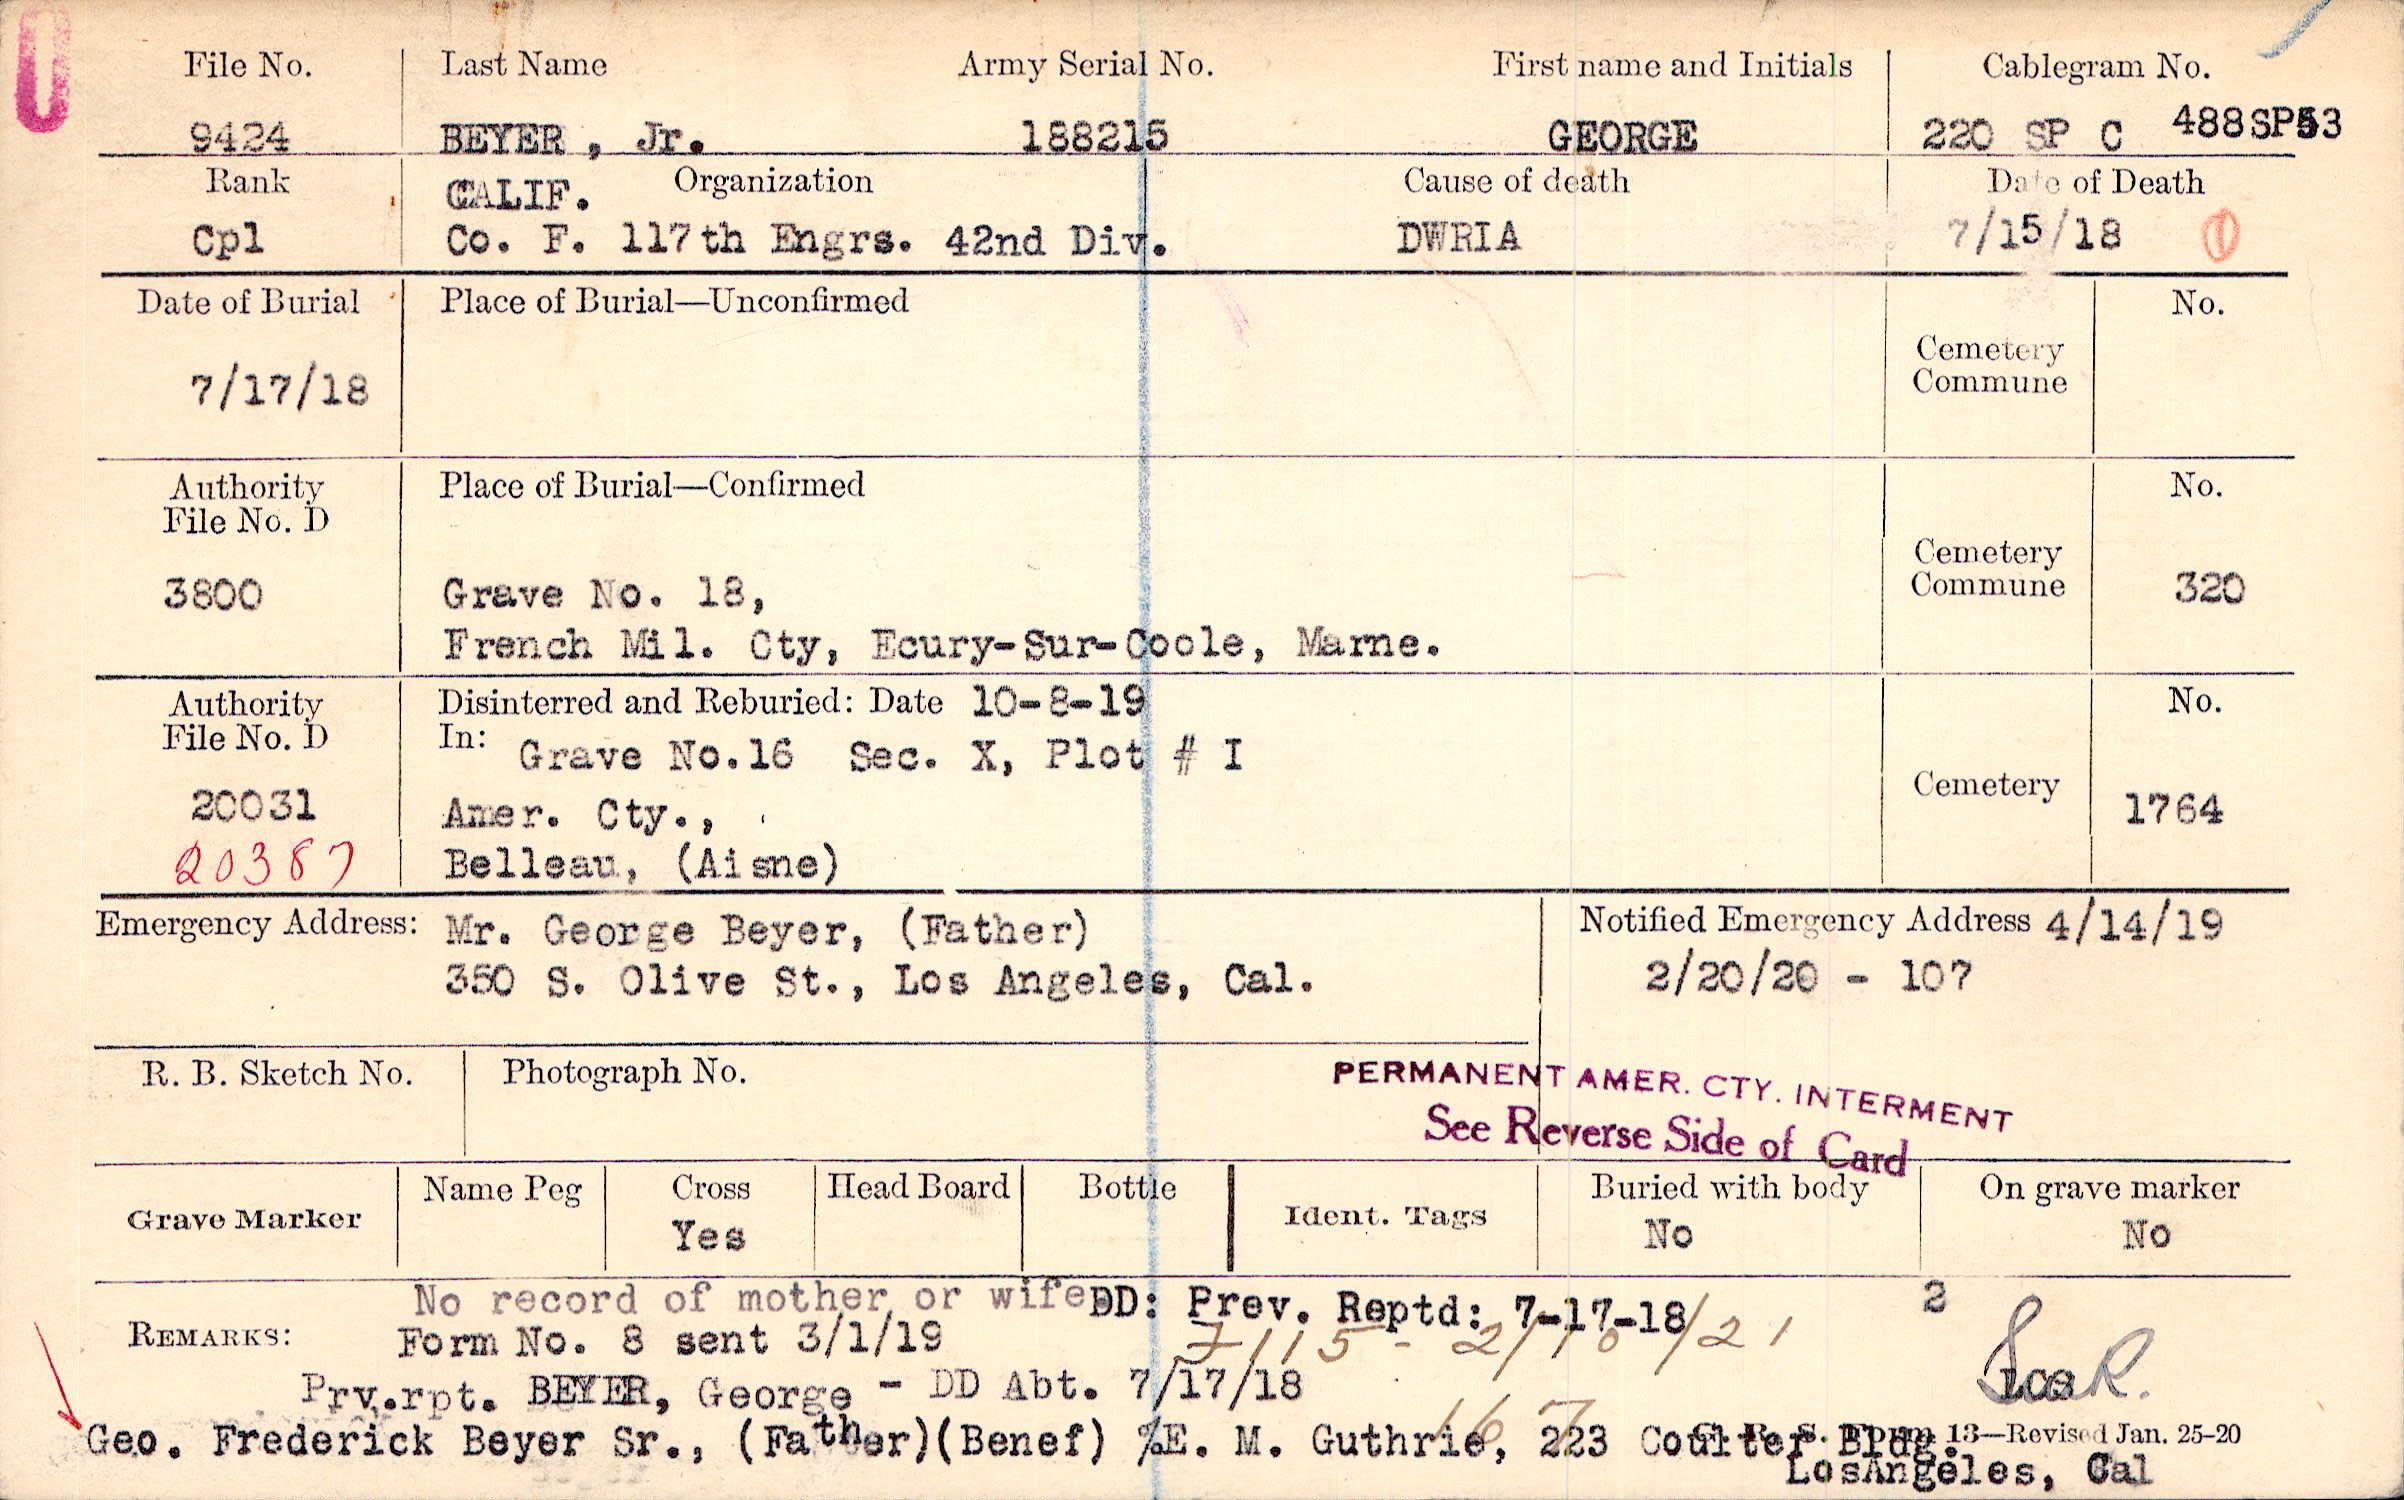 File No. Last Name Army Serial No. First name and Initials Cablegram No.
9424 BEYER, Jr. 188215 GEORGE 220 SP C 488SP53
Rank CALIF. Organization Cause of death Date of Death
Cpl Co. F. 117th Engrs. 42nd Div. DWRIA 7/15/18 1
Date of Burial Place of Burial—Unconfirmed No.
Cemetery
Commune
7/17/18
Authority Place of Burial—Confirmed No.
File No. D
Cemetery
Commune
3800 Grave No. 18, 320
French Mil. Cty, Ecury-Sur-Coole, Marne.
Authority Disinterred and Reburied: Date 10-8-19 No.
File No. D In: Grave No.16 Sec. X, Plot # I
Cemetery
20031 Amer. Cty., 1764
20387 Belleau, (Aisne)
Emergency Address: Mr. George Beyer, (Father) Notified Emergency Address 4/14/19
350 S. Olive St., Los Angeles, Cal. 2/20/20 - 107
R. B. Sketch No. Photograph No. PERMANENT AMER. CTY. INTERMENT
See Reverse Side of Card
Name Peg Cross Head Board Bottle Buried with body On grave marker
Grave Marker Yes Ident. Tags No No
No record of mother or wife DD: Prev. Reptd: 7-17-18 2
REMARKS: Form No. 8 sent 3/1/19
Prv.rpt. BEYER, George - DD Abt. 7/17/18
167
Geo. Frederick Beyer Sr., (Father)(Benef) %E. M. Guthrie, 223 Coulter Bldg.
G. R. S. Form 13—Revised Jan. 25-20
LosAngeles, Cal